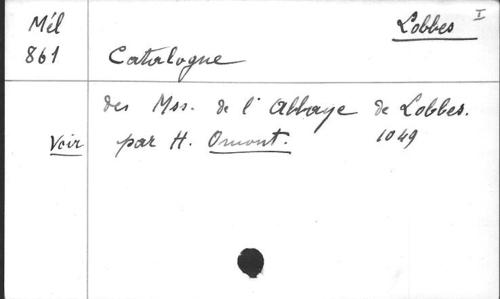 Mél Lobbes I
861 Catalogue
des Mss. de l'Abbaye de Lobbes.
Voir par H. Omont. 1049